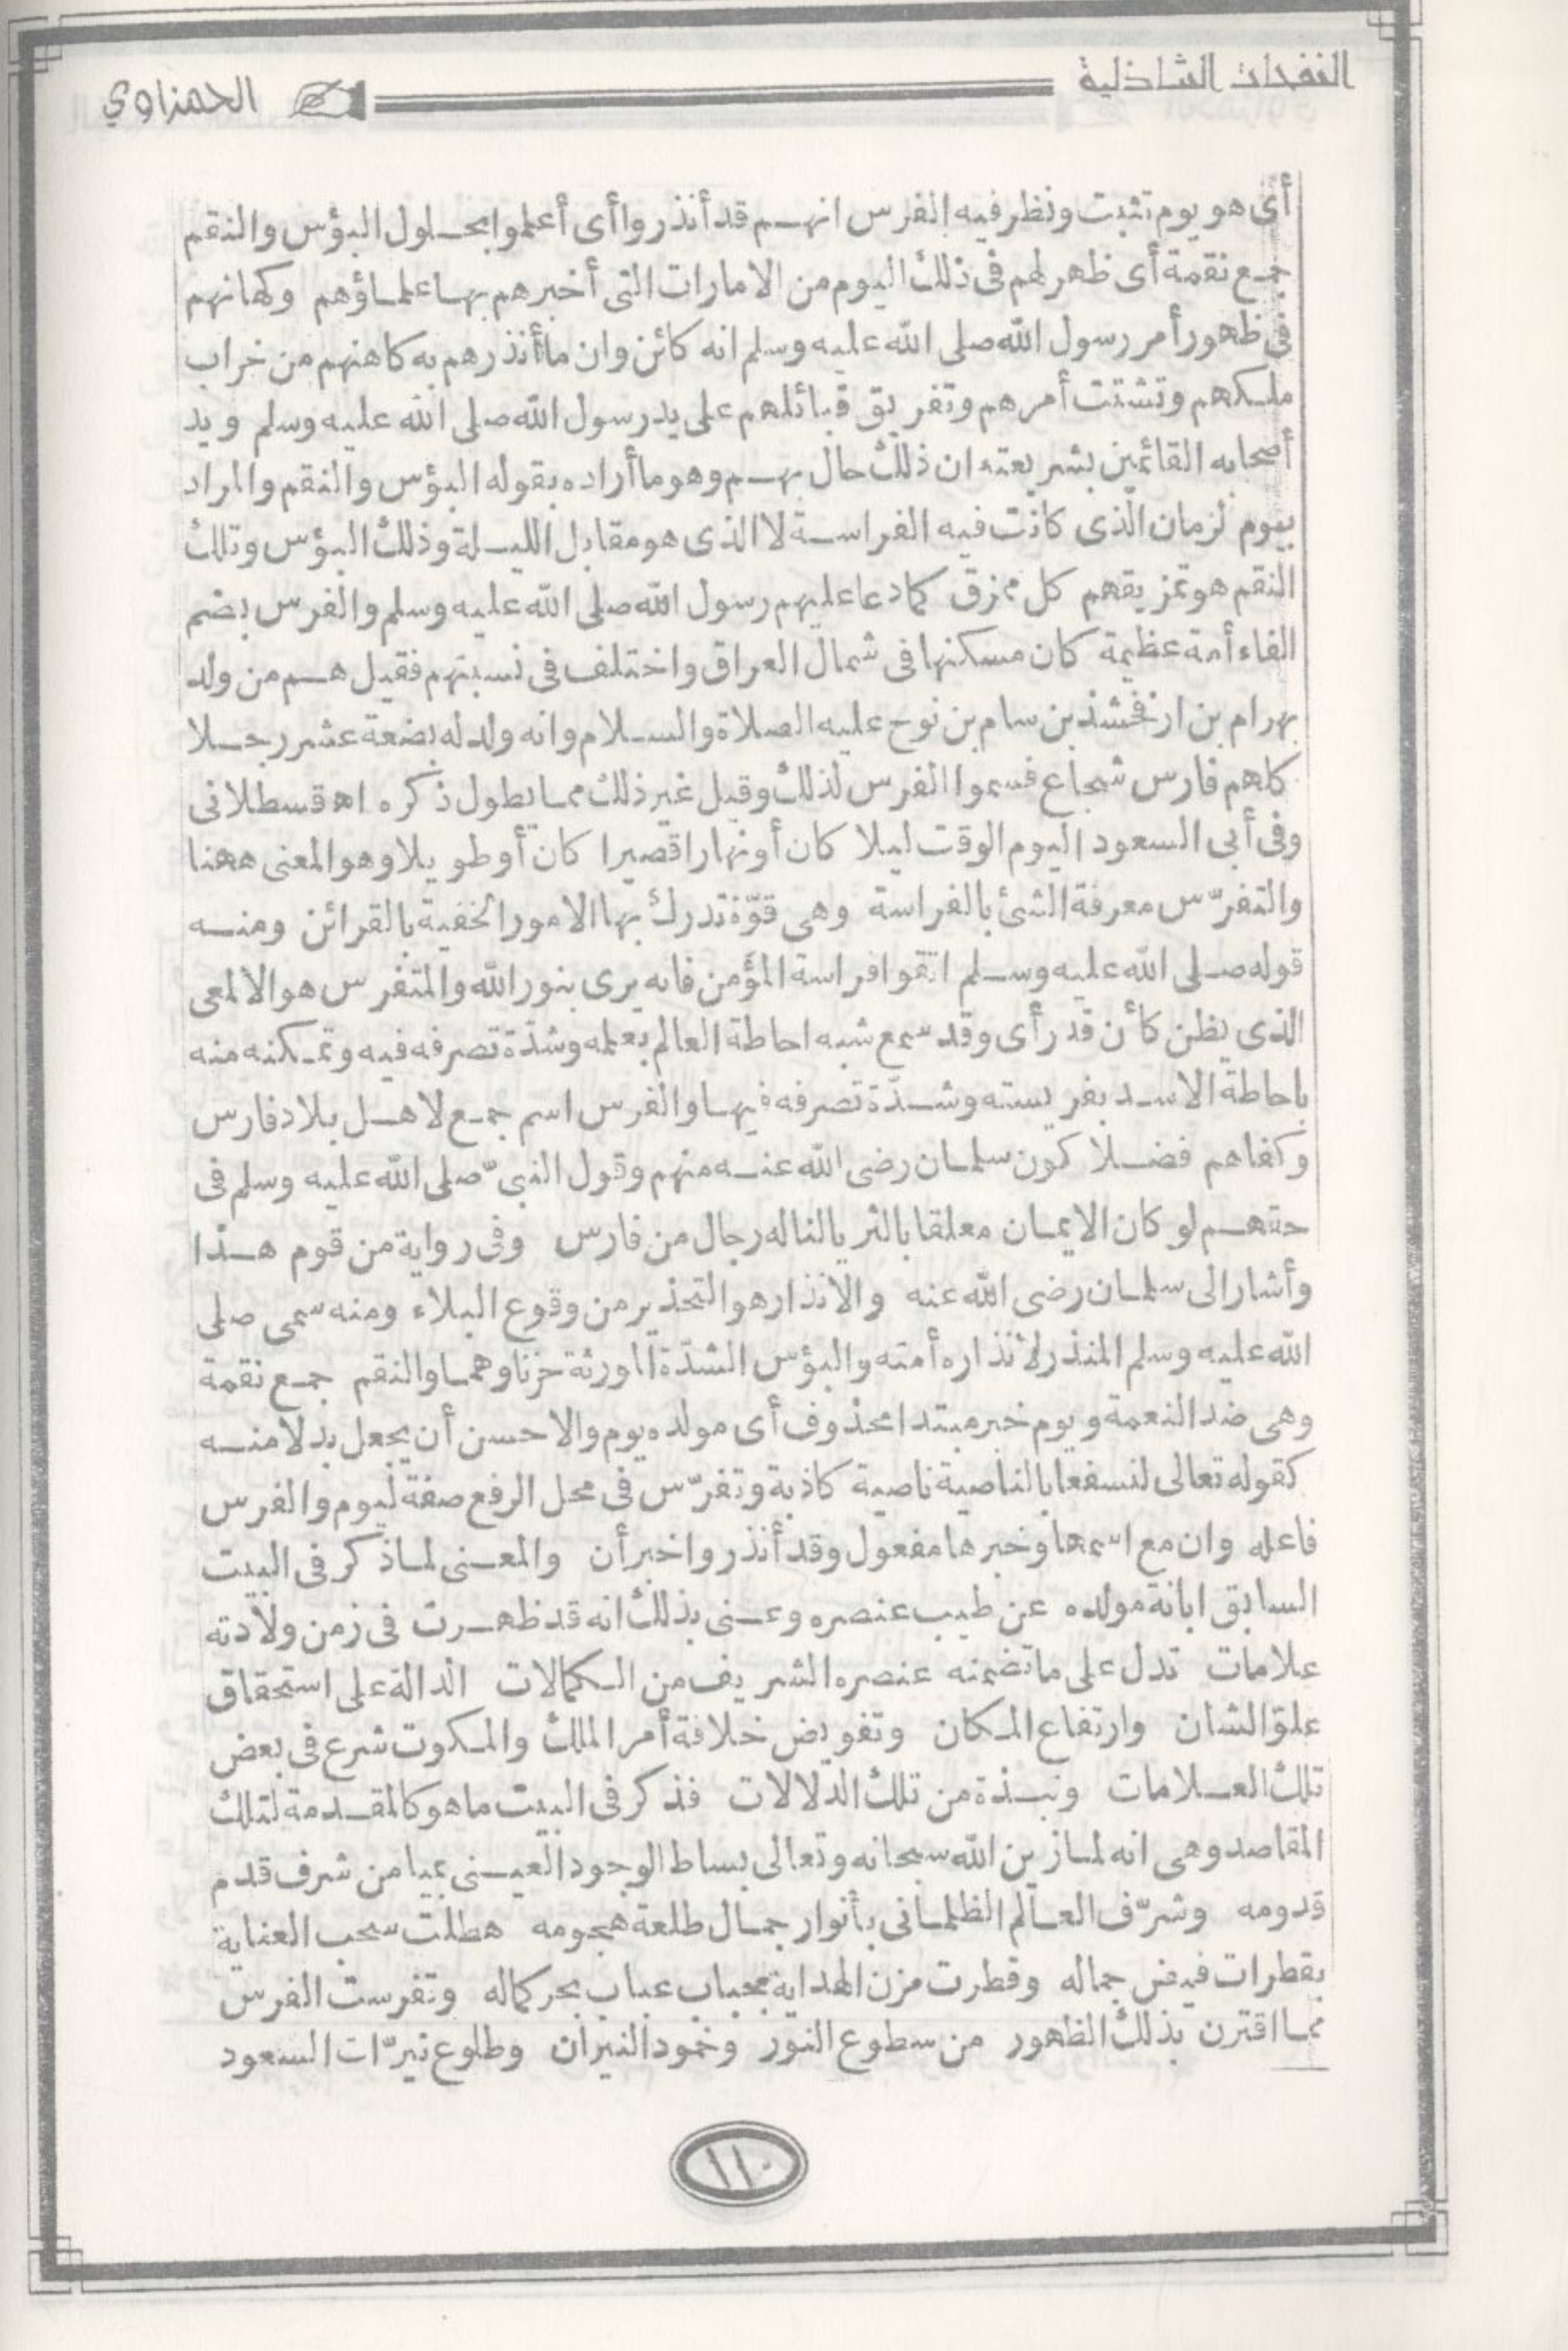 النفحات الشاذلية
الحمزاوي
أى هو يوم تثبت ونظر فيه الفرس انهم قد أنذروا أى أعلموا بحلول البؤس والنقم
جمع نقمة أى ظهر لهم فى ذلك اليوم من الامارات التى أخبرهم بها علماؤهم وكهانهم
فى ظهور أمر رسول الله صلى الله عليه وسلم انه كائن وان ما أنذرهم به كاهنهم من خراب
ملكهم وتشتت أمرهم وتفريق قبائلهم على يد رسول الله صلى الله عليه وسلم ويد
أصحابه القائمين بشريعته ان ذلك حال بهم وهو ما أراده بقوله البؤس والنقم والمراد
بيوم لزمان الذى كانت فيه الفراسة لا الذى هو مقابل الليلة وذلك البؤس وتلك
النقم هو تمزيقهم كل ممزق كما دعا عليهم رسول الله صلى الله عليه وسلم والفرس بضم
الفاء أمة عظيمة كان مسكنها فى شمال العراق واختلف فى نسبتهم فقيل هم من ولد
بهرام بن ارفخشذ بن سام بن نوح عليه الصلاة والسلام وانه ولد له بضعة عشر رجلا
كلهم فارس شجاع فسموا الفرس لذلك وقيل غير ذلك مما يطول ذكره اه قسطلانى
وفى أبى السعود اليوم الوقت ليلا كان أو نهارا قصيرا كان أو طويلا وهو المعنى ههنا
والتفرّس معرفة الشئ بالفراسة وهى قوّة تدرك بها الامور الخفية بالقرائن ومنه
قوله صلى الله عليه وسلم اتقوا فراسة المؤمن فانه يرى بنور الله والمتفرس هو الالمعى
الذى يظن كأن قد رأى وقد سمع شبه احاطة العالم بعلمه وشدّة تصرفه فيه وتمكنه منه
باحاطة الاسد بفريسته وشدّة تصرفه فيها والفرس اسم جمع لاهل بلاد فارس
وكفاهم فضلا كون سلمان رضى الله عنه منهم وقول النبىّ صلى الله عليه وسلم فى
حقهم لو كان الايمان معلقا بالثريا لناله رجال من فارس وفى رواية من قوم هذا
وأشار الى سلمان رضى الله عنه والانذار هو التحذير من وقوع البلاء ومنه سمى صلى
الله عليه وسلم المنذر لانذاره أمته والبؤس الشدّة المورثة حزنا وهما والنقم جمع نقمة
وهى ضد النعمة ويوم خبر مبتدا محذوف أى مولده يوم والاحسن أن يجعل بدلا منه
كقوله تعالى لنسفعا بالناصية ناصية كاذبة وتفرّس فى محل الرفع صفة ليوم والفرس
فاعله وان مع اسمها وخبرها مفعول وقد أنذروا خبر أن والمعنى لما ذكر فى البيت
السابق ابانة مولده عن طيب عنصره وعنى بذلك انه قد ظهرت فى زمن ولادته
علامات تدل على ما تضمنه عنصره الشريف من الكمالات الدالة على استحقاق
علوّ الشان وارتفاع المكان وتفويض خلافة أمر الملك والمكوت شرع فى بعض
تلك العلامات ونبذة من تلك الدلالات فذكر فى البيت ما هو كالمقدمة لتلك
المقاصد وهى انه لما زين الله سبحانه وتعالى بساط الوجود العينى بميامن شرف قدم
قدومه وشرّف العالم الظلمانى بأنوار جمال طلعة هجومه هطلت سحب العناية
بقطرات فيض جماله وقطرت مزن الهداية بحباب عباب بحر كماله وتفرست الفرس
مما اقترن بذلك الظهور من سطوع النور وخمود النيران وطلوع نيرّات السعود
١١٠